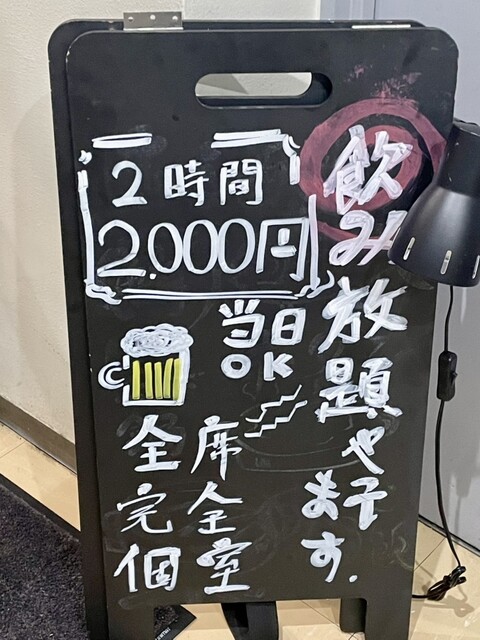 飲み放題やってます.
2時間
2.000円
当日
OK
全席
完全
個室